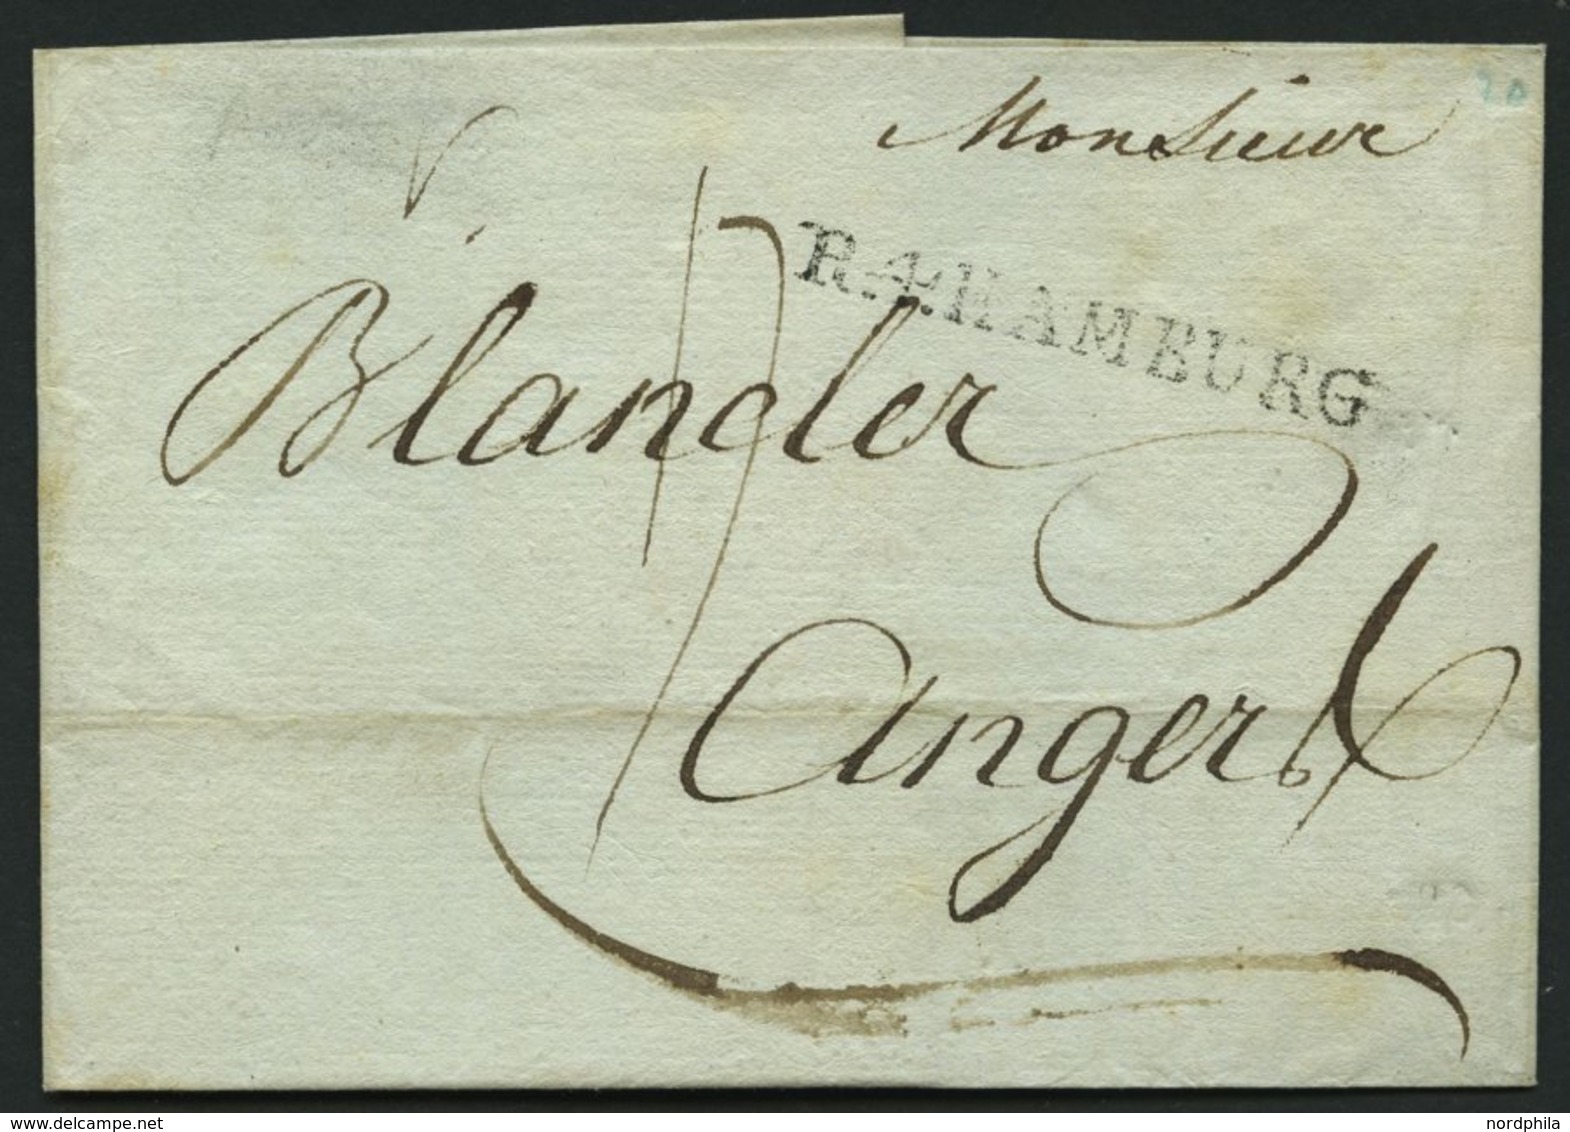 Monsieur
R.4.HAMBURG
Blancler
Angers
www.delcampe.net
nordphila